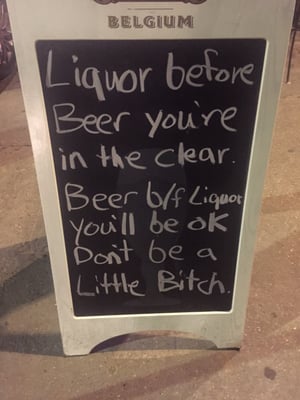 BELGIUM
Liquor before
Beer you're
in the clear.
Beer b/f Liquor
you'll be OK
Don't be a
Little Bitch.